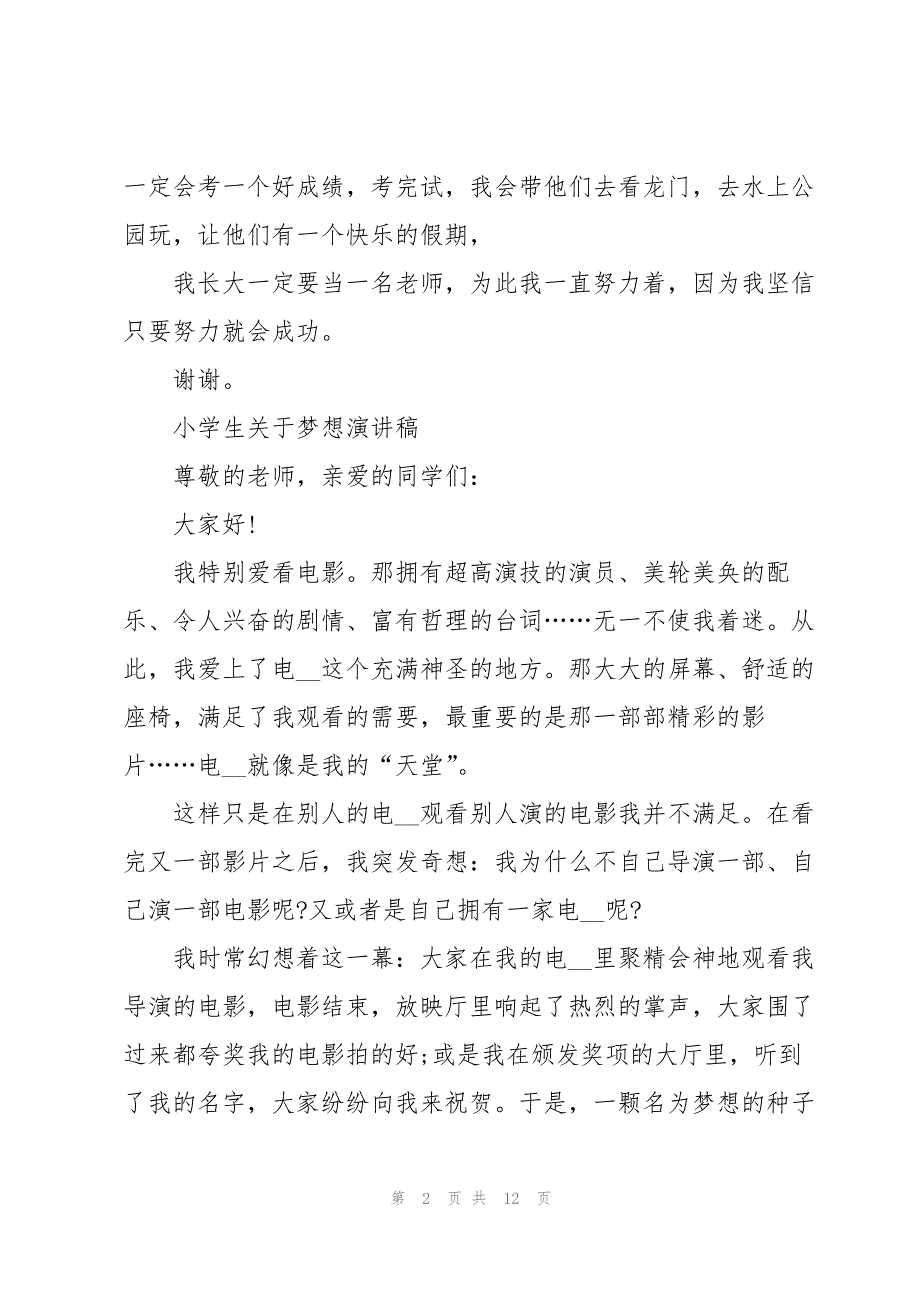 一定会考一个好成绩，考完试，我会带他们去看龙门，去水上公
园玩，让他们有一个快乐的假期，
我长大一定要当一名老师，为此我一直努力着，因为我坚信
只要努力就会成功。
谢谢。
小学生关于梦想演讲稿
尊敬的老师，亲爱的同学们：
大家好!
我特别爱看电影。那拥有超高演技的演员、美轮美奂的配
乐、令人兴奋的剧情、富有哲理的台词……无一不使我着迷。从
此，我爱上了电__这个充满神圣的地方。那大大的屏幕、舒适的
座椅，满足了我观看的需要，最重要的是那一部部精彩的影
片……电__就像是我的“天堂”。
这样只是在别人的电__观看别人演的电影我并不满足。在看
完又一部影片之后，我突发奇想：我为什么不自己导演一部、自
己演一部电影呢?又或者是自己拥有一家电__呢?
我时常幻想着这一幕：大家在我的电__里聚精会神地观看我
导演的电影，电影结束，放映厅里响起了热烈的掌声，大家围了
过来都夸奖我的电影拍的好;或是我在颁发奖项的大厅里，听到
了我的名字，大家纷纷向我来祝贺。于是，一颗名为梦想的种子
第 2 页 共 12 页